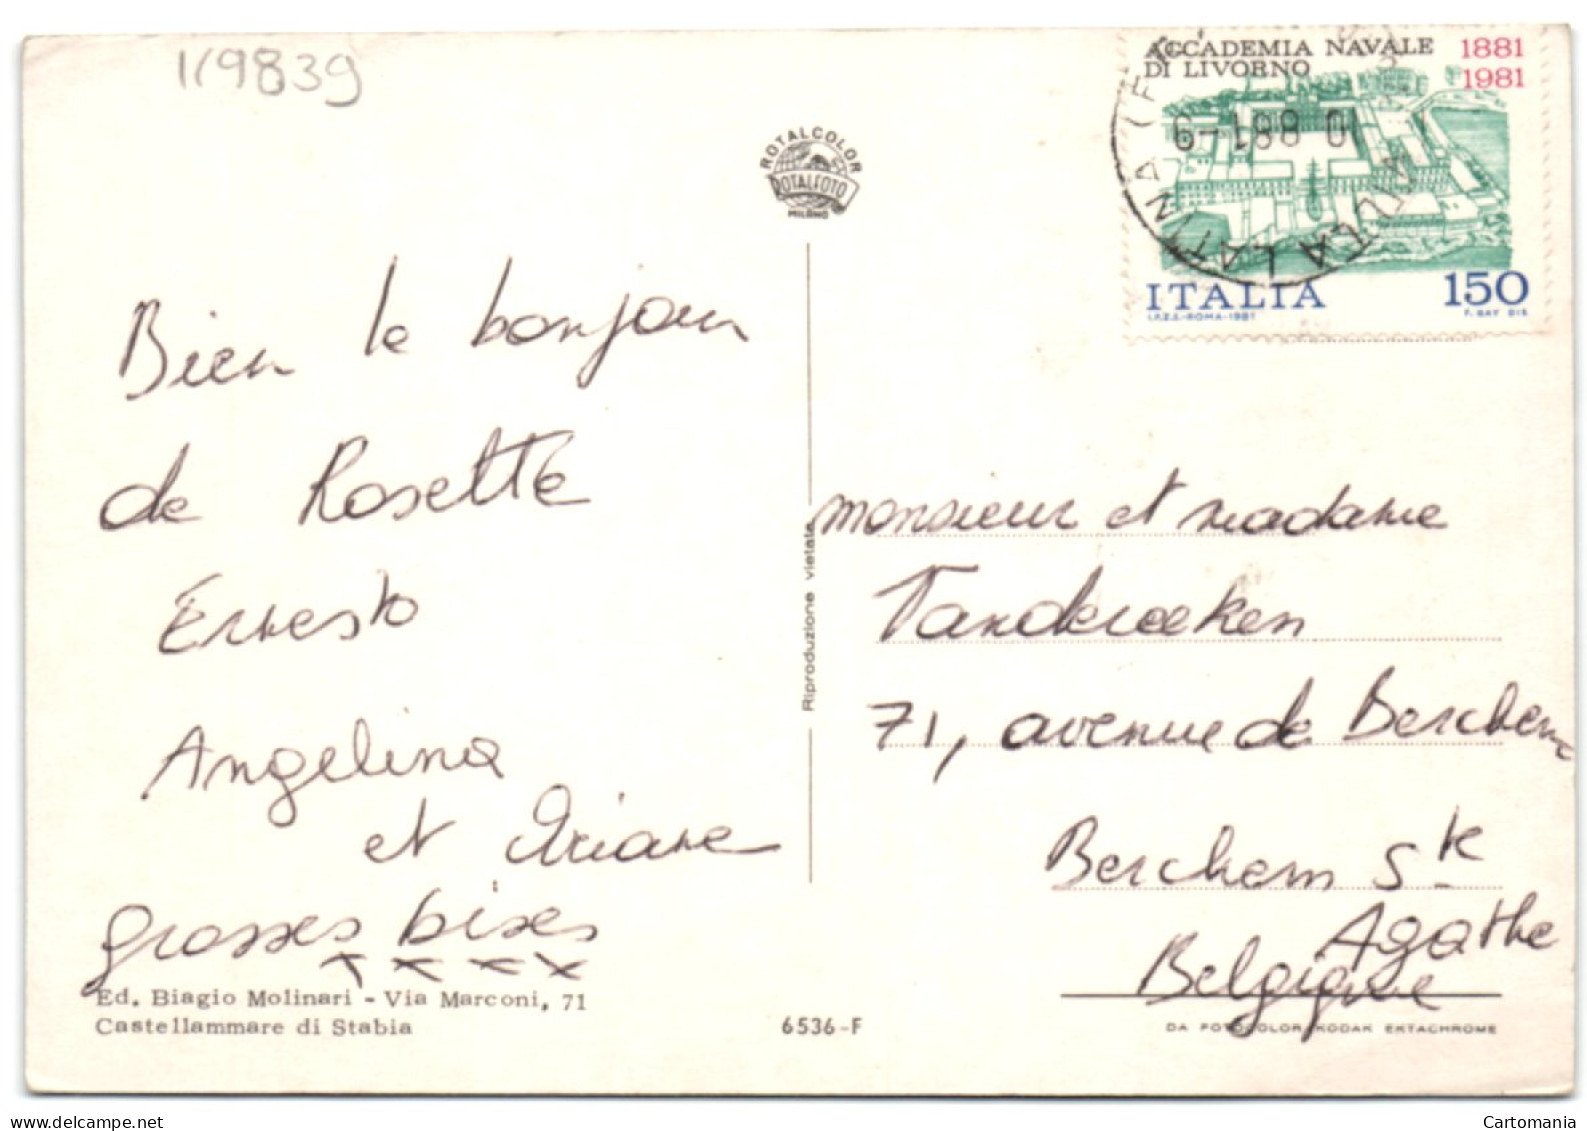 1/9839
ROTALCOLOR
ROTALFOTO
MILANO
ACCADEMIA NAVALE
DI LIVORNO
1881
1981
ITALIA
150
I.P.Z.S.-ROMA-1981
Bien le bonjour
de Rosette
Ernesto
Angelina
et Ariane
grosses bises
x x x x
Ed. Biagio Molinari - Via Marconi, 71
Castellammare di Stabia
6536-F
Riproduzione vietata
monsieur et madame
71, avenue de Berchem
Berchem Ste
Agathe
Belgique
DA FOTOCOLOR KODAK EKTACHROME
Cartomania